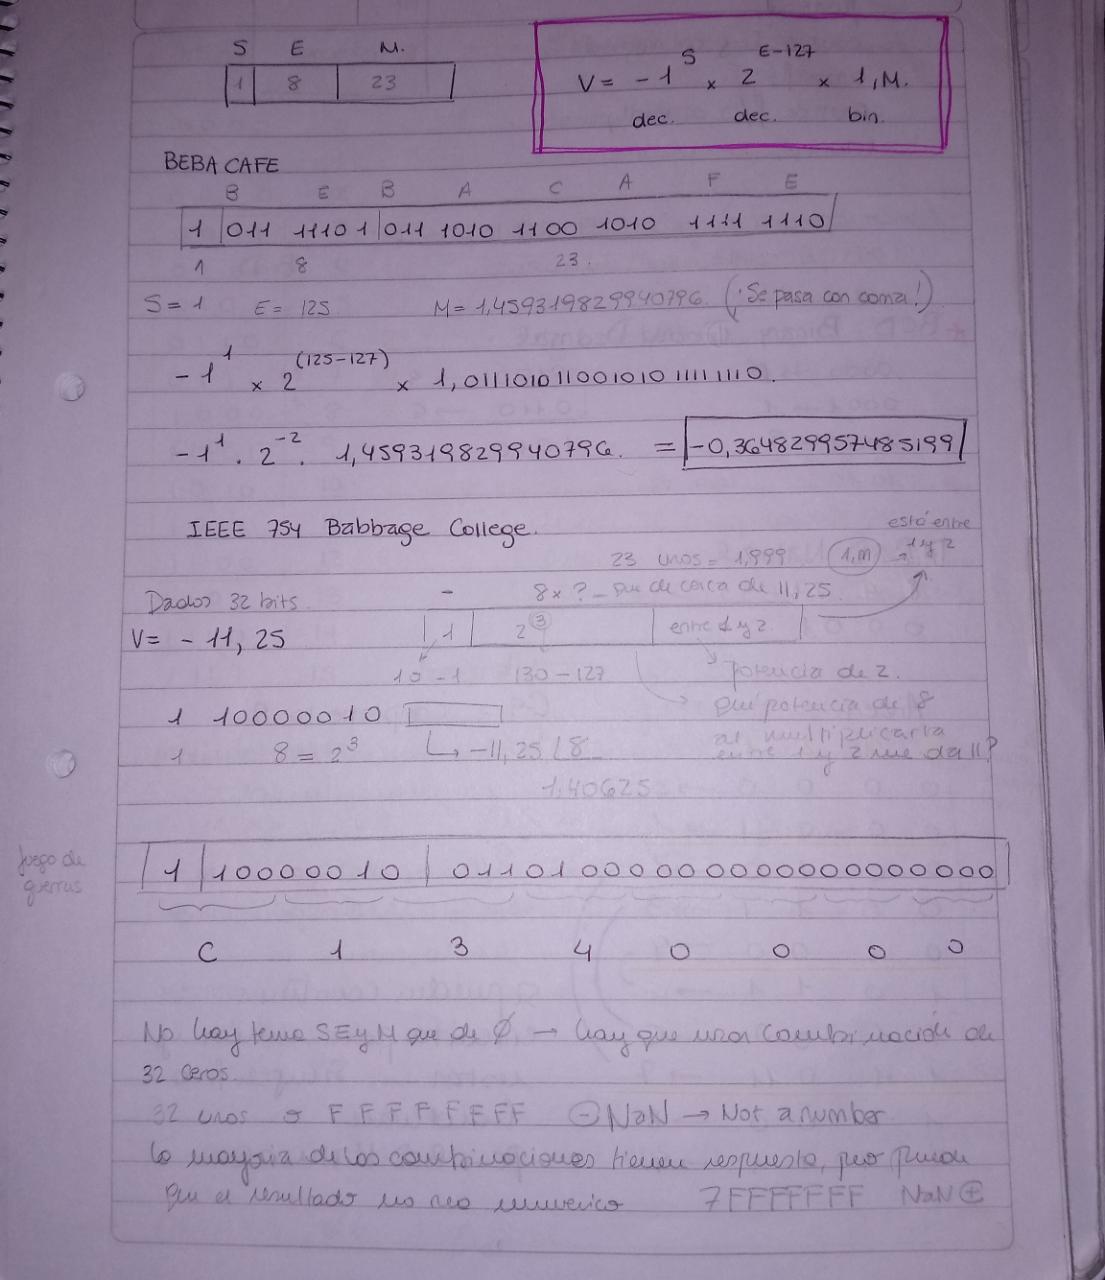 S E M.
1 8 23
V = -1^S x 2^E-127 x 1,M.
dec. dec. bin.
BEBA CAFE
B E B A C A F E
1 011 1110 1 011 1010 1100 1010 1111 1110
1 8 23.
S = 1 E = 125 M = 1,459319829940796. (¡Se pasa con coma!)
-1^1 x 2^(125-127) x 1,01110101100101011111110.
-1^1 . 2^-2 . 1,459319829940796. = -0,364829957485199
IEEE 754 Babbage College.
está entre
23 unos = 1,999 1,m → 1 y 2
- 8 x ? - que de cerca de 11,25
Dados 32 bits.
V = - 11,25
1 2^3 entre 1 y 2
1 0 - 1 130 - 127 potencia de 2.
qué potencia de 8
1 10000010
al multiplicarla
1 8 = 2^3 -11,25 / 8 entre 1 y 2 me da 11?
1.40625
Juego de
guerras
1 10000010 01101000000000000000000
C 1 3 4 0 0 0 0
No hay terna S E y M que de Ø → hay que usar combinación de
32 ceros.
32 unos o F F F F F F F F ⊖ NaN → Not a number.
la mayoria de las combinaciones tienen respuesta, pero puede
que el resultado no sea numerico 7 F F F F F F F NaN ⊕